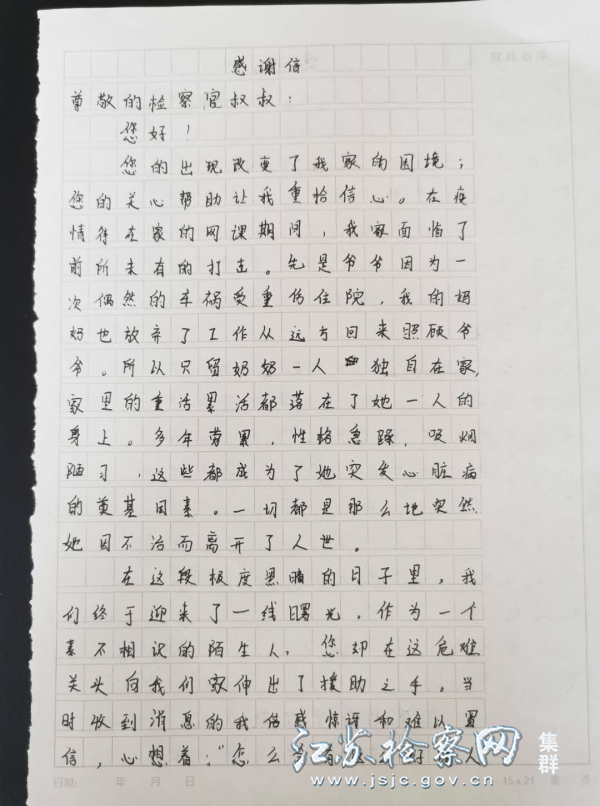 感谢信
尊敬的检察官叔叔：
您好！
您的出现改变了我家的困境；
您的关心帮助让我重拾信心。在疫
情待在家的网课期间，我家面临了
前所未有的打击。先是爷爷因为一
次偶然的车祸受重伤住院，我的妈
妈也放弃了工作从远方回来照顾爷
爷。所以只留奶奶一人独自在家，
家里的重活累活都落在了她一人的
身上。多年劳累，性格急躁，吸烟
陋习，这些都成为了她突发心脏病
的奠基因素。一切都是那么地突然
她因不治而离开了人世。
在这段极度黑暗的日子里，我
们终于迎来了一线曙光，作为一个
素不相识的陌生人，您却在这危难
关头向我们家伸出了援助之手。当
时收到消息的我倍感惊讶和难以置
信，心想着："怎么会有这么好的人
江苏检察网 集群
www.jsjc.gov.cn
日期： 年 月 日 15×21